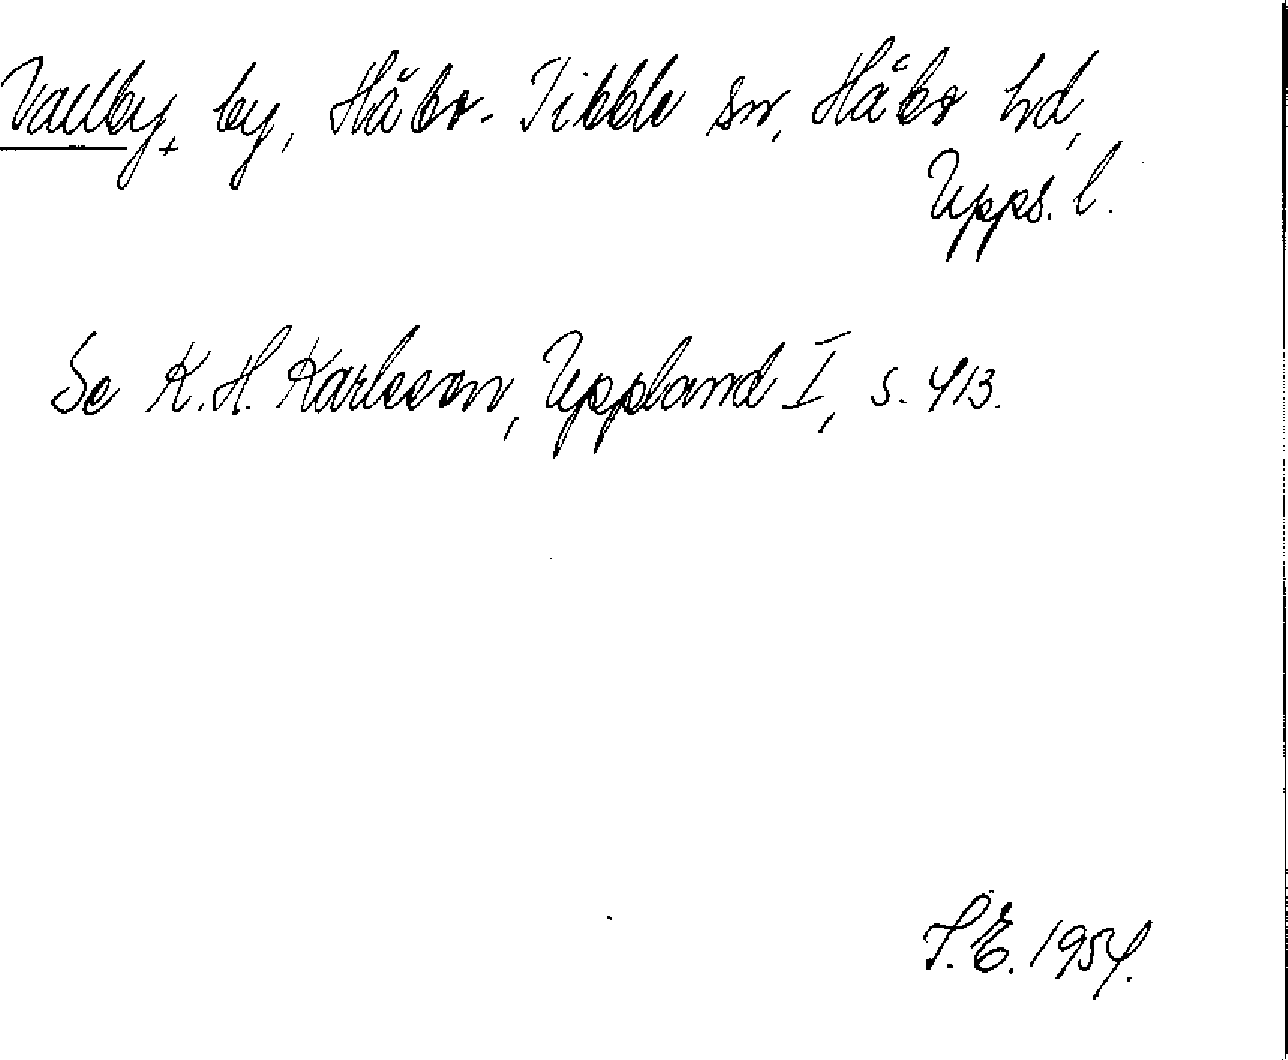 Vallby, by, Håbo-Tibble sn, Håbo hd,
Upps. l.
Se K.H. Karlsson, Uppland I, s. 413.
S.E. 1954.